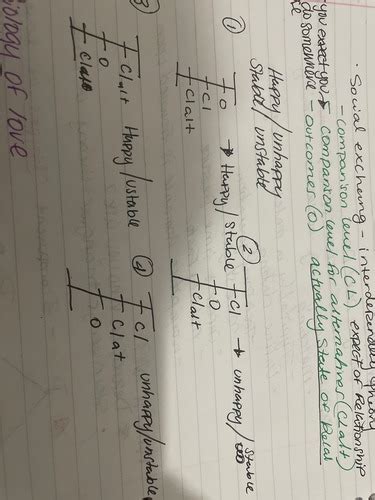 · Social exchang - interdependency theory
- comparison level (CL) expect of Relationship
you expect you → comparison level for alternative (Clalt)
go somewhere
- outcomes (O) actually state of Relat
Happy/unhappy
Stable/unstable
①
O
Cl
Clalt
→ Happy/stable
②
Cl
O
Clalt
→ unhappy/stable
③
Clalt
O
Happy/ustable
④
Cl
Clat
O
unhappy/unstable
ology of love